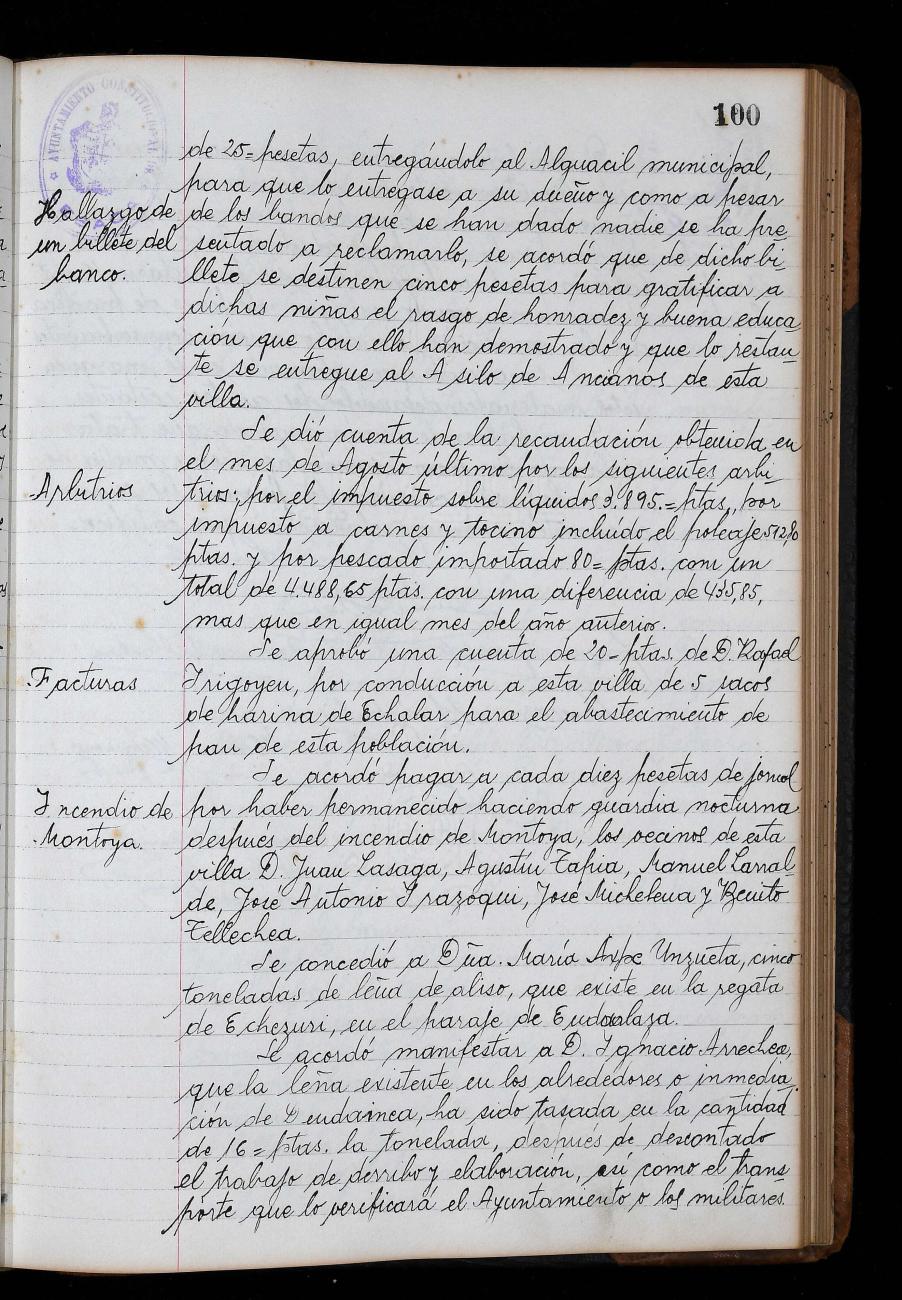 100
AYUNTAMIENTO CONSTITUCIONAL
de 25= pesetas, entregándolo al Alguacil municipal,
para que lo entregase a su dueño y como a pesar
Hallazgo de
un billete del
banco.
de los bandos que se han dado nadie se ha pre
sentado a reclamarlo, se acordó que de dicho bi-
llete se destinen cinco pesetas para gratificar a
dichas niñas el rasgo de honradez y buena educa
ción que con ello han demostrado y que lo restan
te se entregue al Asilo de Ancianos de esta
villa.
Se dió cuenta de la recaudación obtenida en
el mes de Agosto último por los siguientes arbi-
Arbitrios
trios: por el impuesto sobre líquidos 3.895.= ptas, por
impuesto a carnes y tocino incluído el poteaje
ptas. y por pescado importado 80= ptas. con un
total de 4.488,65 ptas. con una diferencia de 435,85,
mas que en igual mes del año anterior.
Se aprobó una cuenta de 20= ptas. de D. Rafael
Facturas
Irigoyen, por conducción a esta villa de 5 sacos
de harina de Echalar para el abastecimiento de
pan de esta población.
Se acordó pagar a cada diez pesetas de jornal
Incendio de
Montoya.
por haber permanecido haciendo guardia nocturna
después del incendio de Montoya, los vecinos de esta
villa D. Juan Lasaga, Agustín Tapia, Manuel Larral-
de, José Antonio Irazoqui, José Michelena y Benito
Tellechea.
Se concedió a Dña. María Unzueta, cinco
toneladas de leña de aliso, que existe en la regata
de Echezuri, en el paraje de Endarlaza.
Se acordó manifestar a D. Ignacio Arrechea,
que la leña existente en los alrededores o inmedia
ción de Dendainea, ha sido tasada en la cantidad
de 16= ptas. la tonelada, después de descontado
el trabajo de derribo y elaboración, así como el trans
porte que lo verificará el Ayuntamiento o los militares.